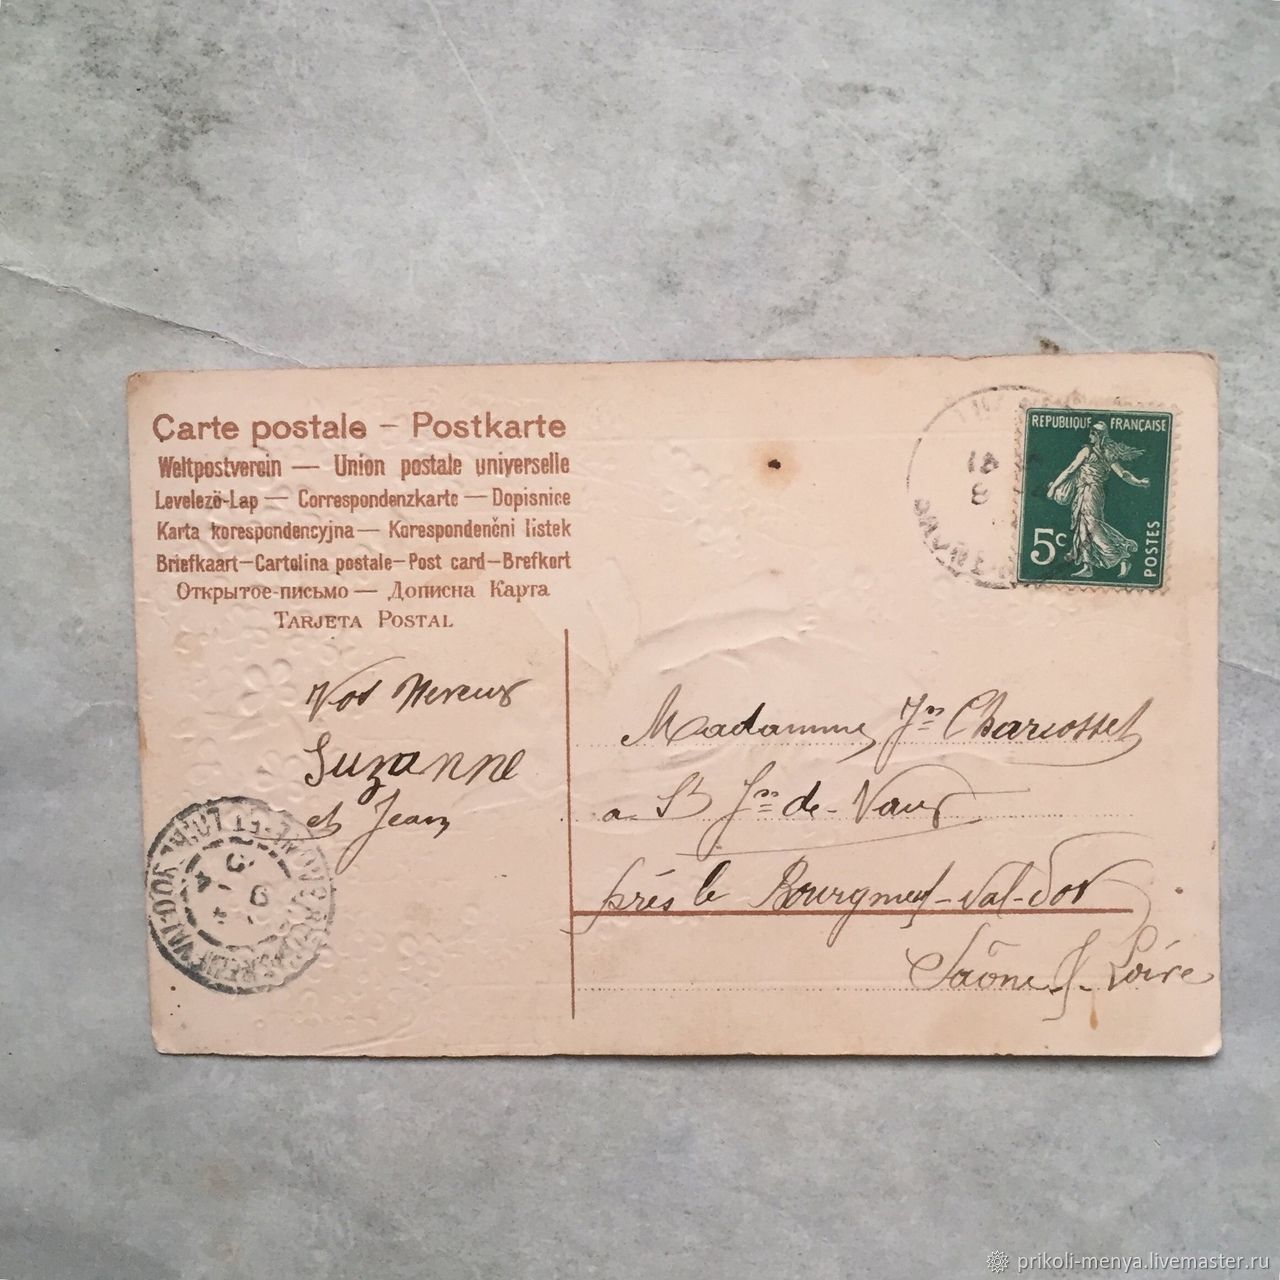 Carte postale – Postkarte
Weltpostverein — Union postale universelle
Levelezö-Lap — Correspondenzkarte — Dopisnice
Karta korespondencyjna — Korespondenčni listek
Briefkaart–Cartolina postale–Post card–Brefkort
Открытое-письмо — Дописна Карта
Tarjeta Postal
REPUBLIQUE FRANÇAISE
5c
POSTES
Vos
Suzanne
et Jean
Madamme Jn Charcosset
a St Jn de-Vaux
près le Bourgneuf-Val-d'or
Saône-&-Loire
prikoli-menya.livemaster.ru